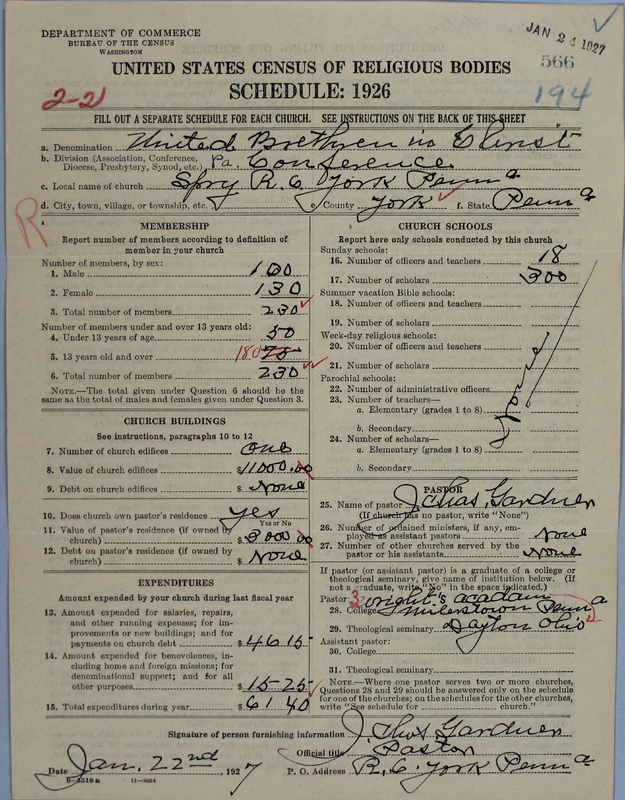 DEPARTMENT OF COMMERCE
BUREAU OF THE CENSUS
WASHINGTON
JAN 24 1927
566
UNITED STATES CENSUS OF RELIGIOUS BODIES
SCHEDULE: 1926
2-21
194
FILL OUT A SEPARATE SCHEDULE FOR EACH CHURCH. SEE INSTRUCTIONS ON THE BACK OF THIS SHEET
a. Denomination United Brethren in Christ
b. Division (Association, Conference, Diocese, Presbytery, Synod, etc.) Pa. Conference
c. Local name of church Spry R.6. York Penna
d. City, town, village, or township, etc. e. County York f. State Penna
R
MEMBERSHIP
Report number of members according to definition of
member in your church
Number of members, by sex:
1. Male 100
2. Female 130
3. Total number of members 230
Number of members under and over 13 years old:
4. Under 13 years of age 50
5. 13 years old and over 180 70
6. Total number of members 230
NOTE.—The total given under Question 6 should be
same as the total of males and females given under Question 3.
CHURCH BUILDINGS
See instructions, paragraphs 10 to 12
7. Number of church edifices One
8. Value of church edifices $11000.00
9. Debt on church edifices $ None
10. Does church own pastor's residence? yes
Yes or No
11. Value of pastor's residence (if owned by
church) $3000 00
12. Debt on pastor's residence (if owned by
church) $ None
EXPENDITURES
Amount expended by your church during last fiscal year
13. Amount expended for salaries, repairs,
and other running expenses; for im-
provements or new buildings; and for
payments on church debt $4615
14. Amount expended for benevolences, in-
cluding home and foreign missions; for
denominational support; and for all
other purposes $1525
15. Total expenditures during year $6140
CHURCH SCHOOLS
Report here only schools conducted by this church
Sunday schools:
16. Number of officers and teachers 18
17. Number of scholars 300
Summer vacation Bible schools:
18. Number of officers and teachers
19. Number of scholars
Week-day religious schools:
20. Number of officers and teachers
21. Number of scholars
None
Parochial schools:
22. Number of administrative officers
23. Number of teachers—
a. Elementary (grades 1 to 8)
b. Secondary
24. Number of scholars—
a. Elementary (grades 1 to 8)
b. Secondary
PASTOR
25. Name of pastor J. Chas. Gardner
(If church has no pastor, write "None")
26. Number of ordained ministers, if any, em-
ployed as assistant pastors None
27. Number of other churches served by the
pastor or his assistants None
If pastor (or assistant pastor) is a graduate of a college or
theological seminary, give name of institution below. (If
not a graduate, write "No" in the space indicated.)
Pastor: 3
28. College Millerstown Penna
29. Theological seminary Dayton Ohio
Assistant pastor:
30. College
31. Theological seminary
NOTE.—Where one pastor serves two or more churches,
Questions 28 and 29 should be answered only on the schedule
for one of the churches; on the schedules for the other churches,
write "See schedule for church.
Signature of person furnishing information J. Chas. Gardner
Official title Pastor
Date Jan. 22nd, 1927
P. O. Address R. 6. York Penna
8—5518 a 11—9064